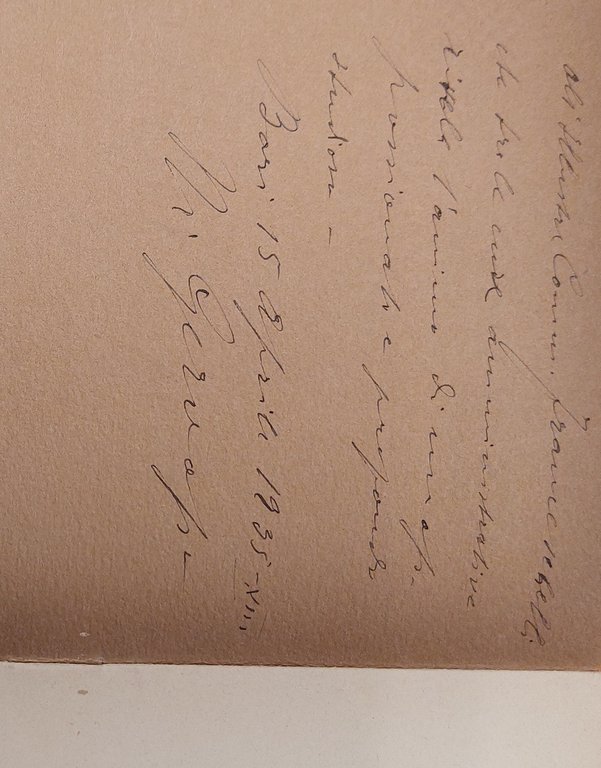 All'illustre Comm. Franc
che tra le cure amministrative
l'animo di un ap-
passionato e profondo
studioso -
Bari 15 Aprile 1935-XIII
M. Gervasio